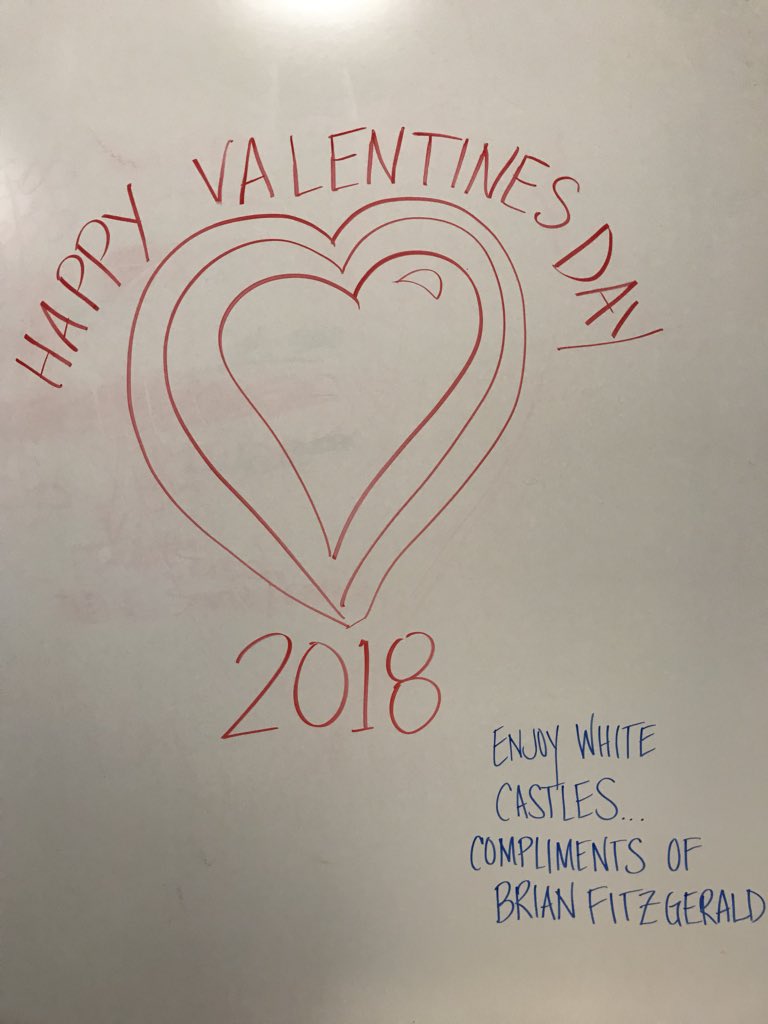 HAPPY VALENTINES DAY
2018
ENJOY WHITE
CASTLES...
COMPLIMENTS OF
BRIAN FITZGERALD